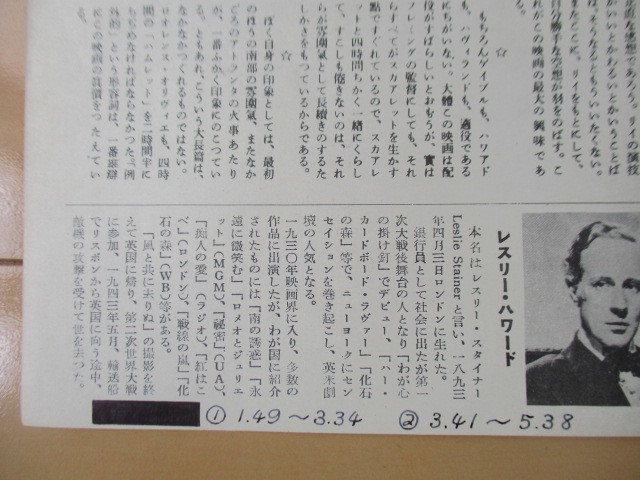 正直な感想であろう。リイの演技
もちろんゲイブルも、ハワアド
も、ハヴィランドも、適役である
にちがいない。大體この映画は配
役がすばらしいとおもうが、實は
フレミングの監督にしても、それ
らすべてがスカアレットを生かす
點ですぐれているので、スカアレ
ットと四時間ちかく一緒にくらし
て、すこしも倦きないのは、それ
らが雰圍氣として長續きのするた
しかさをもつているからである。
☆
ぼく自身の印象としては、最初
のほうの南部の雰圍氣、またなか
ごろのアトランタの火事あたり
が、一番ふかく印象にのこつてい
る。ともあれ、こういう大長篇は、
なかなかつくれるものではない。
ロオレンス・オリヴィエも、四時
間の「ハムレット」を二時間半に
ちぢめなければならなかつた。例
外的」という形容詞は、一番單辯
にこの映画の眞價をつたえてい
レスリー・ハワード
本名はレスリー・スタイナー
Leslie Stainer と言い、一八九三
年四月三日ロンドンに生れた。
銀行員として社会に出たが第一
次大戦後舞台の人となり「わが心
の掛け釘」でデビュー、「ハー・
カードボード・ラヴァー」「化石
の森」等で、ニューヨークにセン
セイションを巻き起こし、英米劇
壇の人気となる。
一九三〇年映画界に入り、多数の
作品に出演したが、わが国に紹介
されたものには「南の誘惑」「永
遠に微笑む」「ロメオとジュリエ
ット」(MGM)、「秘密」(UA)、
「痴人の愛」(ラジオ)、「紅はこ
べ」(ロンドン)、「戦線の嵐」「化
石の森」(WB)等がある。
「風と共に去りぬ」の撮影を終
えて英国に帰り、第二次世界大戦
に参加、一九四三年五月、輸送船
でリスボンから英国に向う途中、
敵機の攻撃を受けて世を去つた。
① 1.49～3.34 ② 3.41～5.38